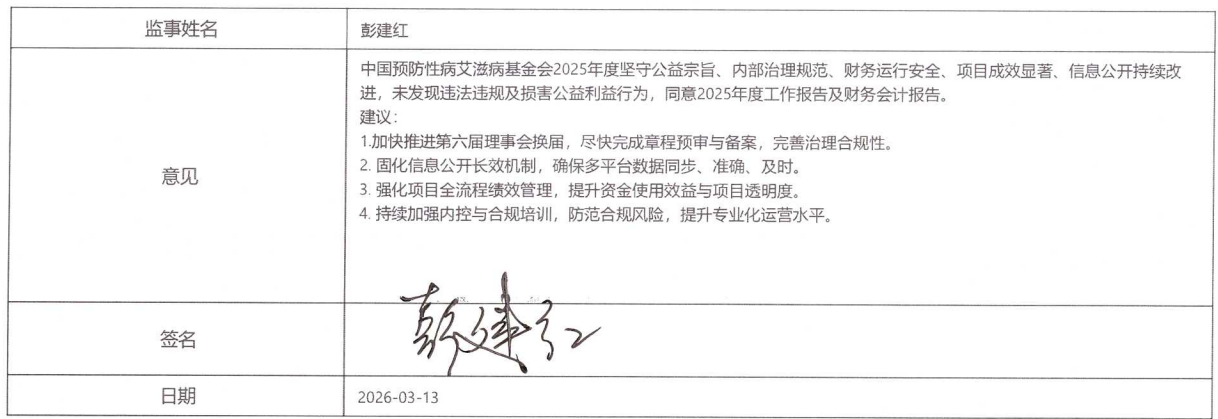 监事姓名
彭建红
中国预防性病艾滋病基金会2025年度坚守公益宗旨、内部治理规范、财务运行安全、项目成效显著、信息公开持续改
进，未发现违法违规及损害公益利益行为，同意2025年度工作报告及财务会计报告。
建议：
1.加快推进第六届理事会换届，尽快完成章程预审与备案，完善治理合规性。
2. 固化信息公开长效机制，确保多平台数据同步、准确、及时。
3. 强化项目全流程绩效管理，提升资金使用效益与项目透明度。
4. 持续加强内控与合规培训，防范合规风险，提升专业化运营水平。
意见
签名
彭建红
日期
2026-03-13